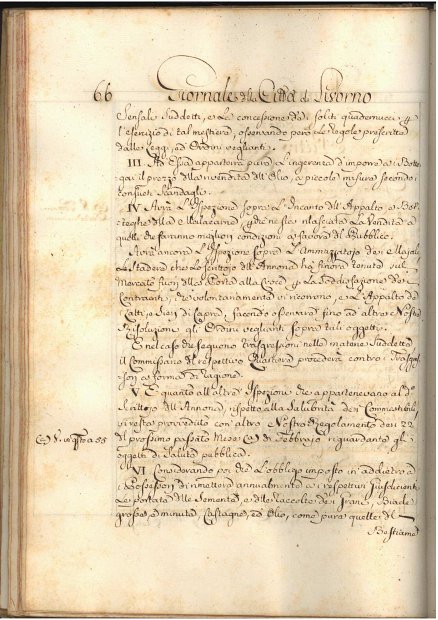 66 Giornale della Città di Livorno
Sensali Suddetti, e La concessione de i soliti quadernucci p
l'esercizio di tal mestiere, osservando però Le regole prescritte
dalle Leggi, ed Ordini veglianti.
III. Ad Essa apparterrà pure L'ingerenza d'imporre a i Botte-
gai il prezzo alla rivendita dell'Olio, a piccola misura secondo i
consueti Scandagli.
IV. Avrà L'Ispezione sopra L'Incanto dell'Appalto e Bot-
teghe della
quelli che faranno migliori condizioni a favore del Pubblico.
Avrà ancora L'Ispezione sopra L'Ammazzatojo dei Majali
La Stadera che Lo Scrittojo dell'Annona ha finora tenuta sul
Mercato fuori della Porta alla Croce p La Soddisfazione de i
Contraenti, che volontariamente vi ricorrono, e L'Appalto de
Latti, e Sieri di Capra, facendo osservare fino ad altre Nostre
Risoluzioni gli Ordini veglianti sopra tali oggetti.
E nel caso che seguono trasgressioni nelle materie Suddette
il Commissario del respettivo Quartiere procederà contro i Trasgres-
sori a forma di ragione.
V. E quanto all'altre Ispezioni che appartenevano al
Scrittojo dell'Annona, rispetto alla Salubrità dei Commestibili
vi resta provveduto con altro Nostro Regolamento dei 22
del prossimo passato Mese di Febbrajo riguardante gli
oggetti di Salute pubblica.
VI. Considerando poi che L'obbligo imposto in addietro a
i Possessori di rimettere annualmente a i respettivi Giusdicenti
Le portate delle Semente, e delle raccolte dei Grani, Biade
grosse, e minute, Castagne, ed Olio, come pure quelle del
Bestiame